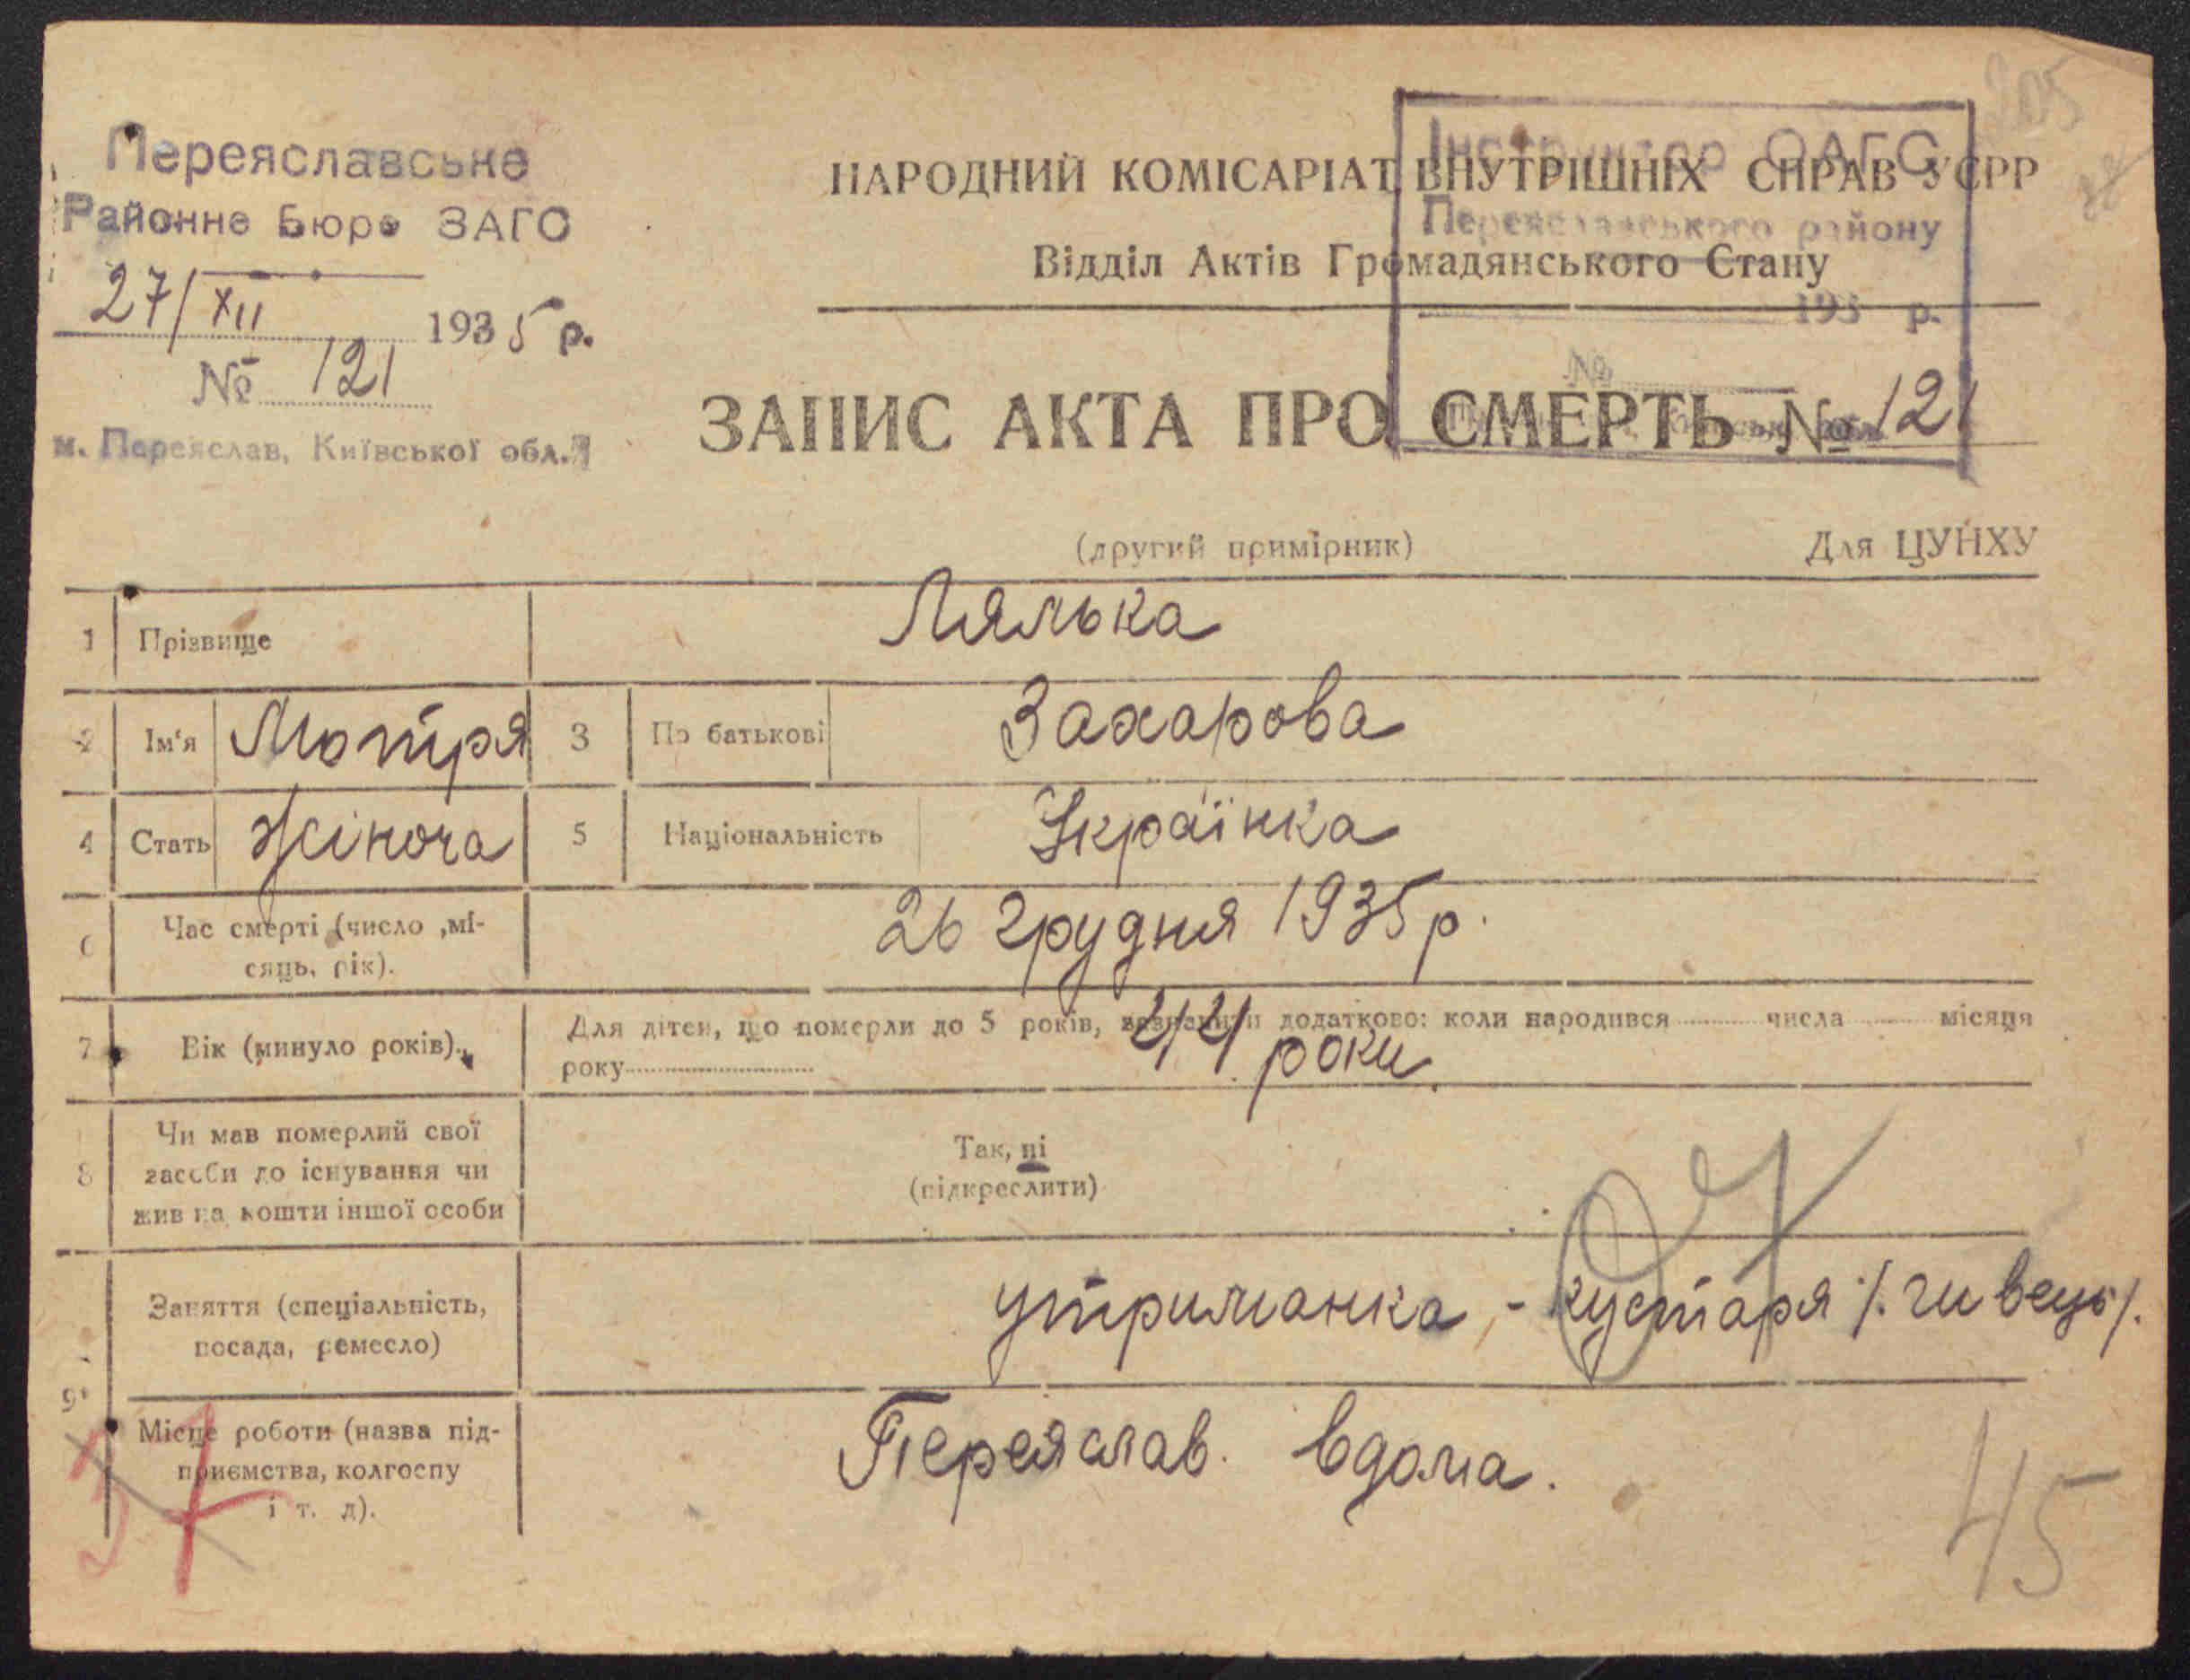 Переяславське
Районне Бюро ЗАГС
27/XII 1935 р.
№ 121
м. Переяслав, Київської обл.
205
Інструктор ОАГС
Переяславського району
193 р.
№
НАРОДНИЙ КОМІСАРІАТ ВНУТРІШНІХ СПРАВ УСРР
Відділ Актів Громадянського Стану
ЗАПИС АКТА ПРО СМЕРТЬ № 121
(другий примірник) Для ЦУНХУ
1 Прізвище Лялька
2 Ім'я Мотря 3 По батькові Захарова
4 Стать жіноча 5 Національність Українка
6 Час смерті (число ,мі-
сяць, рік).
26 грудня 1935 р.
7 Вік (минуло років).
Для дітей, що померли до 5 років, зазначити додатково: коли народився числа місяця
року
роки
8 Чи мав померлий свої
засоби до існування чи
жив на кошти іншої особи
Так, ні
(підкреслити)
9 Заняття (спеціальність,
посада, ремесло)
утриманка, - кустаря /. чивець/.
Місце роботи (назва під-
приємства, колгоспу
і т. д).
Переяслав. вдома.
45